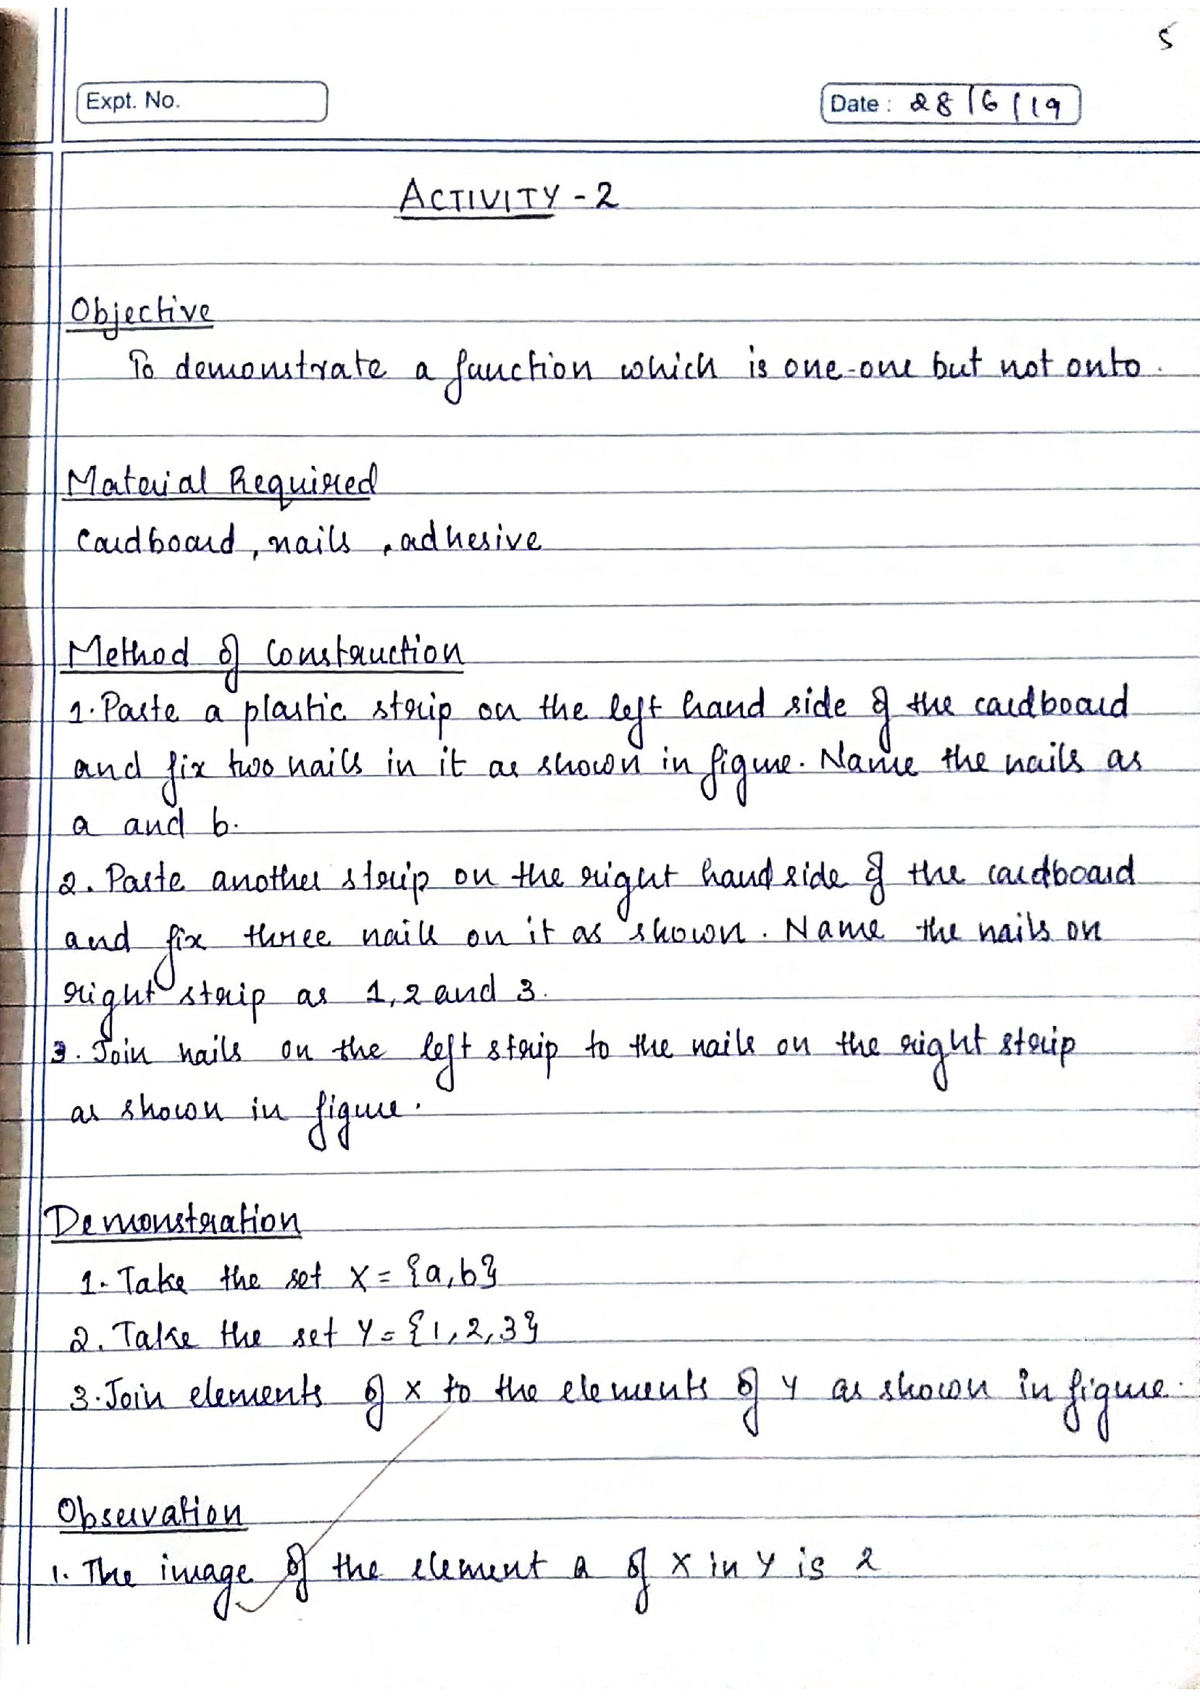 5
Expt. No.
Date : 28/6/19
ACTIVITY - 2
Objective
To demonstrate a function which is one-one but not onto.
Material Required
Cardboard, nails, adhesive
Method of Construction
1. Paste a plastic strip on the left hand side of the cardboard
and fix two nails in it as shown in figure. Name the nails as
a and b.
2. Paste another strip on the right hand side of the cardboard
and fix three nails on it as shown. Name the nails on
right strip as 1, 2 and 3.
3. Join nails on the left strip to the nails on the right strip
as shown in figure.
Demonstration
1. Take the set X = {a, b}
2. Take the set Y = {1, 2, 3}
3. Join elements of X to the elements of Y as shown in figure.
Observation
1. The image of the element a of X in Y is 2